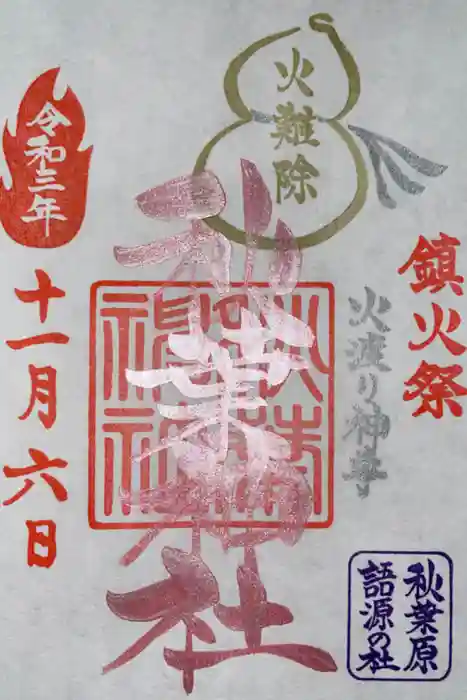 鎮火祭
火渡り神事
火難除
秋葉神社
令和三年
十一月六日
秋葉原
語源の社